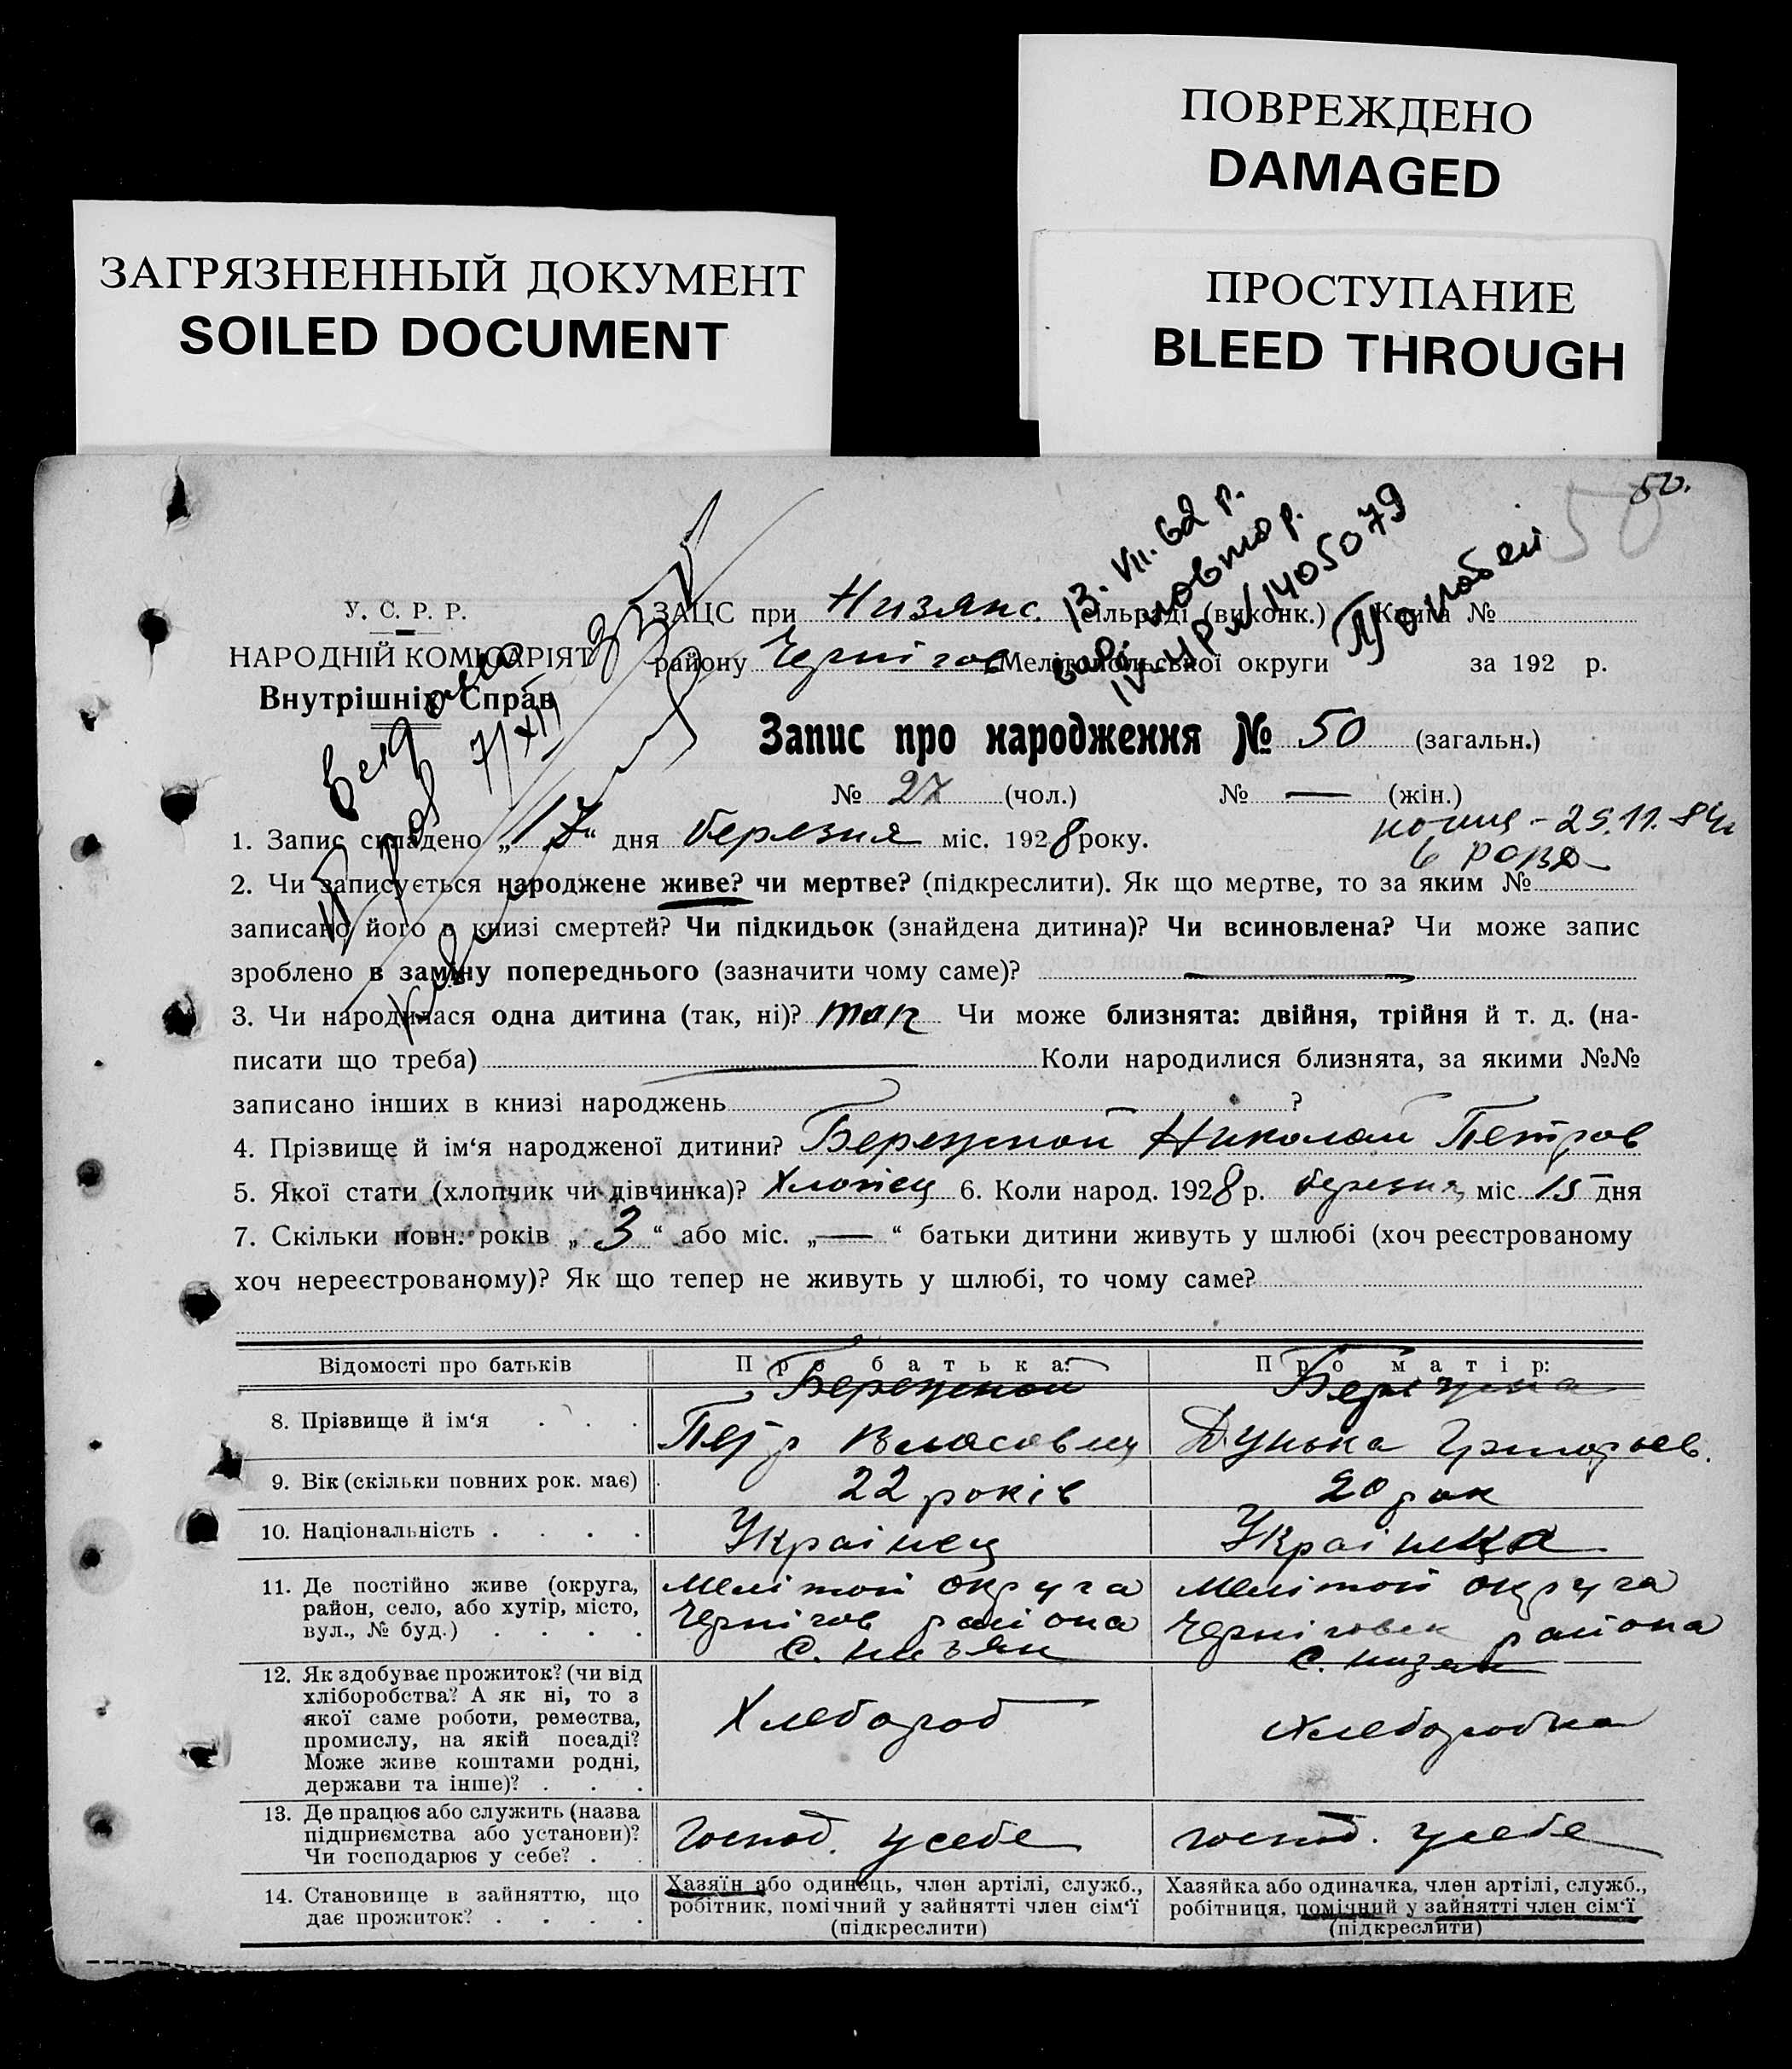 ПОВРЕЖДЕНО
DAMAGED
ЗАГРЯЗНЕННЫЙ ДОКУМЕНТ
SOILED DOCUMENT
ПРОСТУПАНИЕ
BLEED THROUGH
50.
50
13. VII. 62 р.
повтор.
1405079
У. С. Р. Р.
НАРОДНІЙ КОМІСАРІЯТ
Внутрішніх Справ
7/XII
ЗАЦС при Низянс. сільраді (виконк.) Книга №
району Чернігов Мелітопольської округи за 192 р.
Запис про народження № 50 (загальн.)
№ 27 (чол.) № — (жін.)
копия - 25.11.84
1. Запис складено „17“ дня березня міс. 1928 року.
2. Чи записується народжене живе? чи мертве? (підкреслити). Як що мертве, то за яким №
записано його в книзі смертей? Чи підкидьок (знайдена дитина)? Чи всиновлена? Чи може запис
зроблено в заміну попереднього (зазначити чому саме)? —
3. Чи народилася одна дитина (так, ні)? так Чи може близнята: двійня, трійня й т. д. (на-
писати що треба) — Коли народилися близнята, за якими №№
записано інших в книзі народжень ?
4. Прізвище й ім‘я народженої дитини? Бережной Николай Петров
5. Якої стати (хлопчик чи дівчинка)? Хлопец 6. Коли народ. 1928 р. березня міс. 15 дня
7. Скільки повн. років „3“ або міс. „—“ батьки дитини живуть у шлюбі (хоч реєстрованому
хоч нереєстрованому)? Як що тепер не живуть у шлюбі, то чому саме?
Відомості про батьків Про батька: Про матір:
8. Прізвище й ім‘я Бережной Петр Власович Бережна Дунька Григорьев.
9. Вік (скільки повних рок. має) 22 років 20 рок
10. Національність Украінец Украінка
11. Де постійно живе (округа,
район, село, або хутір, місто,
вул., № буд.)
Меліт ой округа
Чернігов района
с. Низян
Меліт ой округа
Черніговск района
с. Низян
12. Як здобуває прожиток? (чи від
хліборобства? А як ні, то з
якої саме роботи, ремества,
промислу, на якій посаді?
Може живе коштами родні,
держави та інше)?
Хлебороб
хлеборобка
13. Де працює або служить (назва
підприємства або установи)?
Чи господарює у себе?
Господ. у себе
господ. у себе
14. Становище в зайняттю, що
дає прожиток?
Хазяїн або одинець, член артілі, служб.,
робітник, помічний у зайнятті член сім‘ї
(підкреслити)
Хазяйка або одиначка, член артілі, служб.,
робітниця, помічний у зайнятті член сім‘ї
(підкреслити)